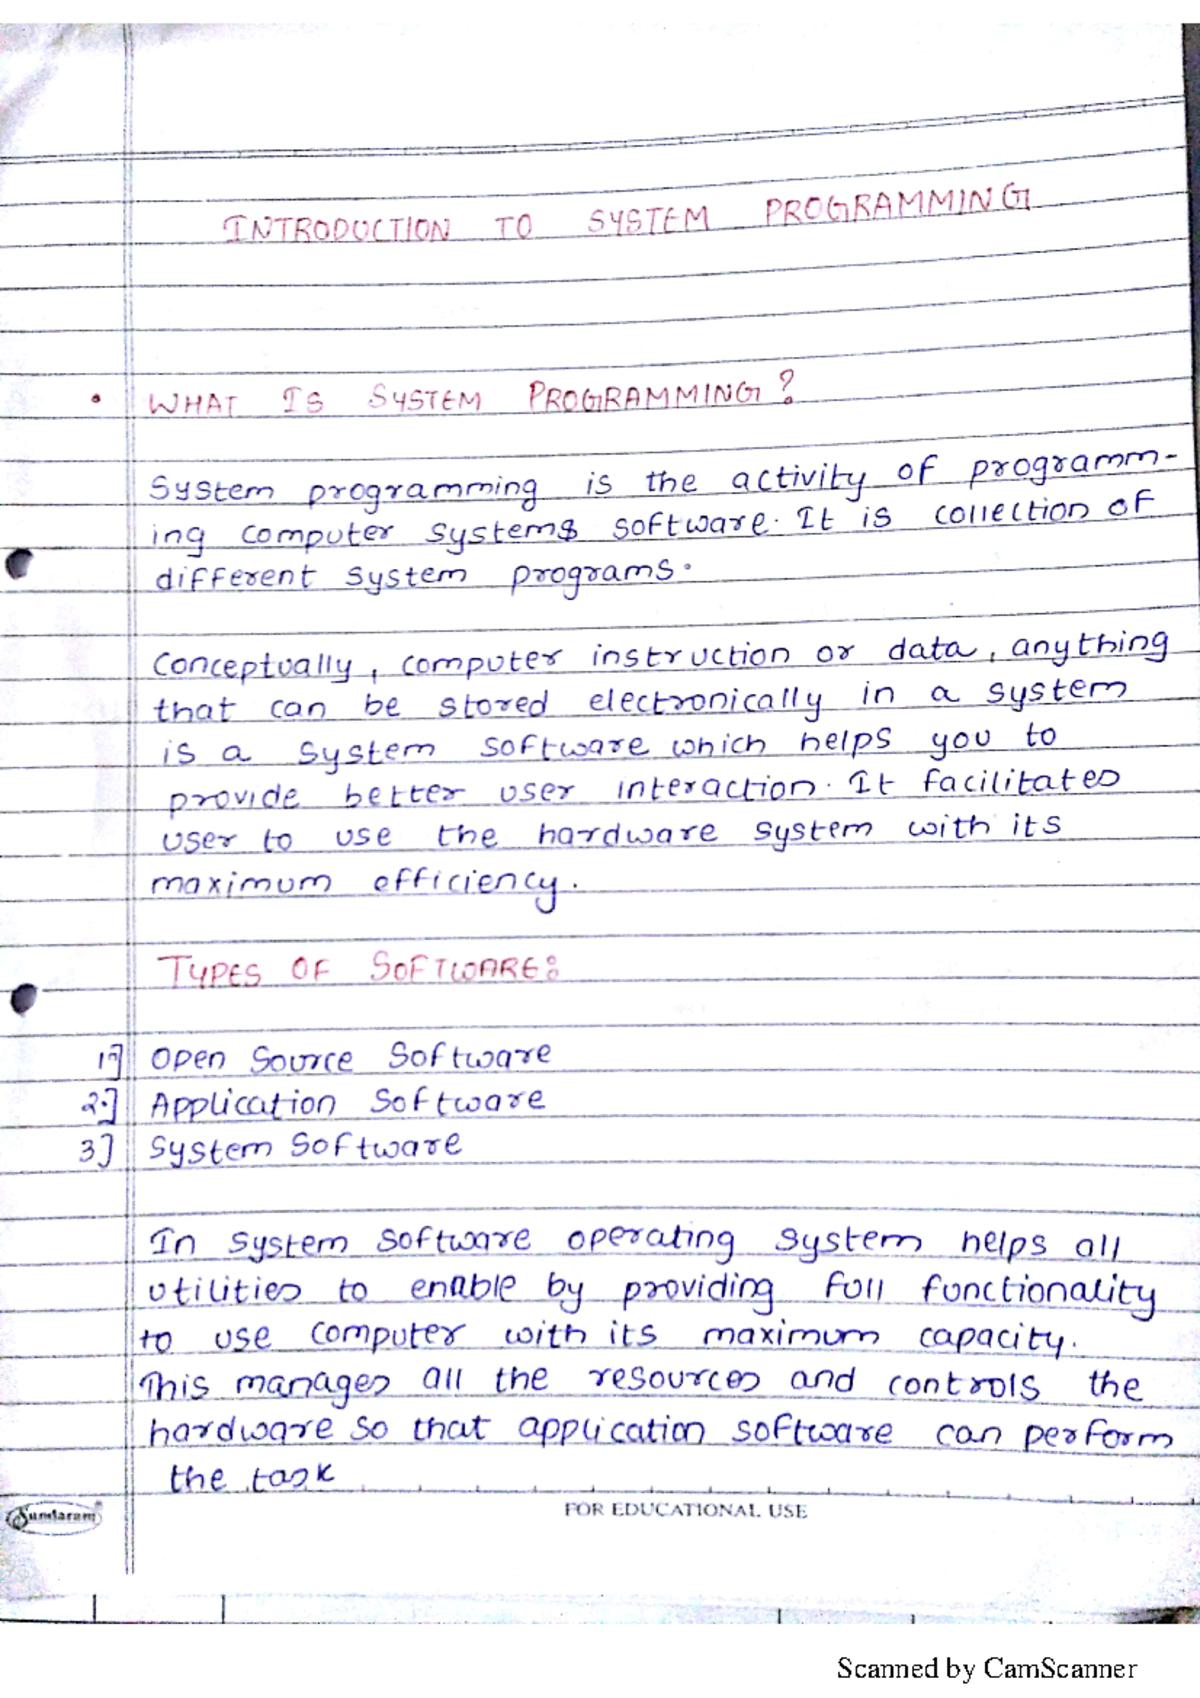 INTRODUCTION TO SYSTEM PROGRAMMING
• WHAT IS SYSTEM PROGRAMMING?
System programming is the activity of programm-
ing computer systems software. It is collection of
different system programs.
Conceptually, computer instruction or data, anything
that can be stored electronically in a system
is a system software which helps you to
provide better user interaction. It facilitates
user to use the hardware system with its
maximum efficiency.
TYPES OF SOFTWARE:
1] Open Source Software
2.] Application Software
3] System Software
In system software operating system helps all
utilities to enable by providing full functionality
to use computer with its maximum capacity.
This manages all the resources and controls the
hardware so that application software can perform
the task
Sundaram
FOR EDUCATIONAL USE
Scanned by CamScanner